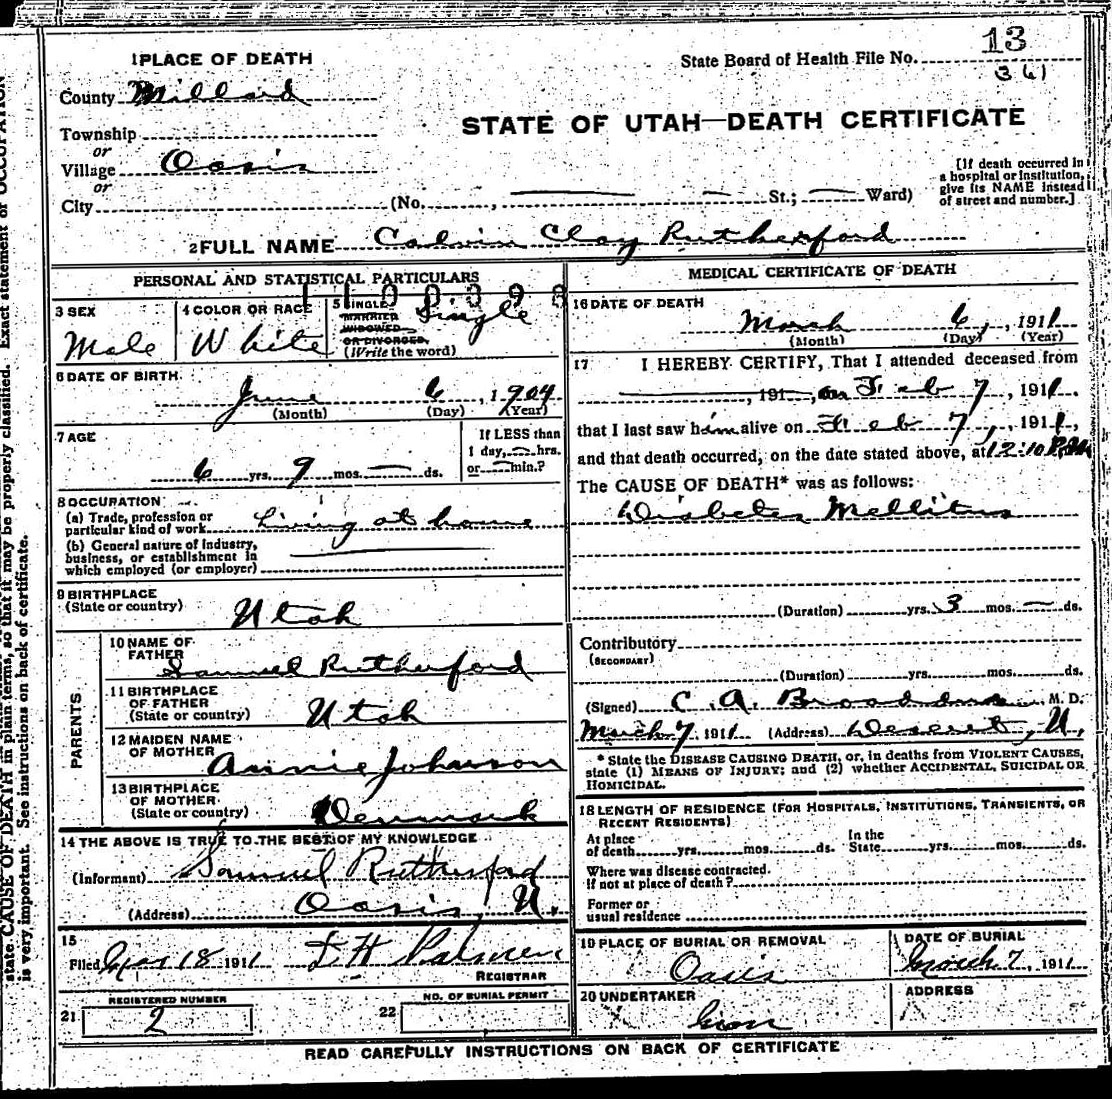 1 PLACE OF DEATH
County Millard
Township
or
Village Oasis
or
City (No. , St.; Ward)
State Board of Health File No. 13
361
STATE OF UTAH—DEATH CERTIFICATE
[If death occurred in
a hospital or institution,
give its NAME instead
of street and number.]
2 FULL NAME Calvin Clay Rutherford
PERSONAL AND STATISTICAL PARTICULARS
3 SEX
Male
4 COLOR OR RACE
White
5 SINGLE
MARRIED
WIDOWED
OR DIVORCED
(Write the word)
Single
6 DATE OF BIRTH
June 6, 1904
(Month) (Day) (Year)
7 AGE
6 yrs. 9 mos. — ds.
If LESS than
1 day, — hrs.
or — min.?
8 OCCUPATION
(a) Trade, profession or
particular kind of work Living at home
(b) General nature of industry,
business, or establishment in
which employed (or employer)
9 BIRTHPLACE
(State or country) Utah
PARENTS
10 NAME OF
FATHER Samuel Rutherford
11 BIRTHPLACE
OF FATHER
(State or country) Utah
12 MAIDEN NAME
OF MOTHER Annie Johnson
13 BIRTHPLACE
OF MOTHER
(State or country) Denmark
14 THE ABOVE IS TRUE TO THE BEST OF MY KNOWLEDGE
(Informant) Samuel Rutherford
(Address) Oasis, U.
15
Filed Mar 18 1911
REGISTRAR
REGISTERED NUMBER
21 2
NO. OF BURIAL PERMIT
22
MEDICAL CERTIFICATE OF DEATH
16 DATE OF DEATH
March 6, 1911
(Month) (Day) (Year)
17 I HEREBY CERTIFY, That I attended deceased from
, 191 , on Feb 7, 1911,
that I last saw him alive on Feb 7, 1911,
and that death occurred, on the date stated above, at 12:10 P.M
The CAUSE OF DEATH* was as follows:
Diabetes Mellitus
(Duration) yrs. 3 mos. — ds.
Contributory
(SECONDARY)
(Duration) yrs. mos. ds.
(Signed) C. A. Broaddus M. D.
March 7 1911 (Address) Deseret, U.
* State the DISEASE CAUSING DEATH, or, in deaths from VIOLENT CAUSES,
state (1) MEANS OF INJURY; and (2) whether ACCIDENTAL, SUICIDAL OR
HOMICIDAL.
18 LENGTH OF RESIDENCE (FOR HOSPITALS, INSTITUTIONS, TRANSIENTS, OR
RECENT RESIDENTS)
At place
of death yrs. mos. ds.
In the
State yrs. mos. ds.
Where was disease contracted.
If not at place of death?
Former or
usual residence
19 PLACE OF BURIAL OR REMOVAL
Oasis
DATE OF BURIAL
March 7, 1911
20 UNDERTAKER
ADDRESS
READ CAREFULLY INSTRUCTIONS ON BACK OF CERTIFICATE
state CAUSE OF DEATH in plain terms, so that it may be properly classified. Exact statement of OCCUPATION
is very important. See instructions on back of certificate.